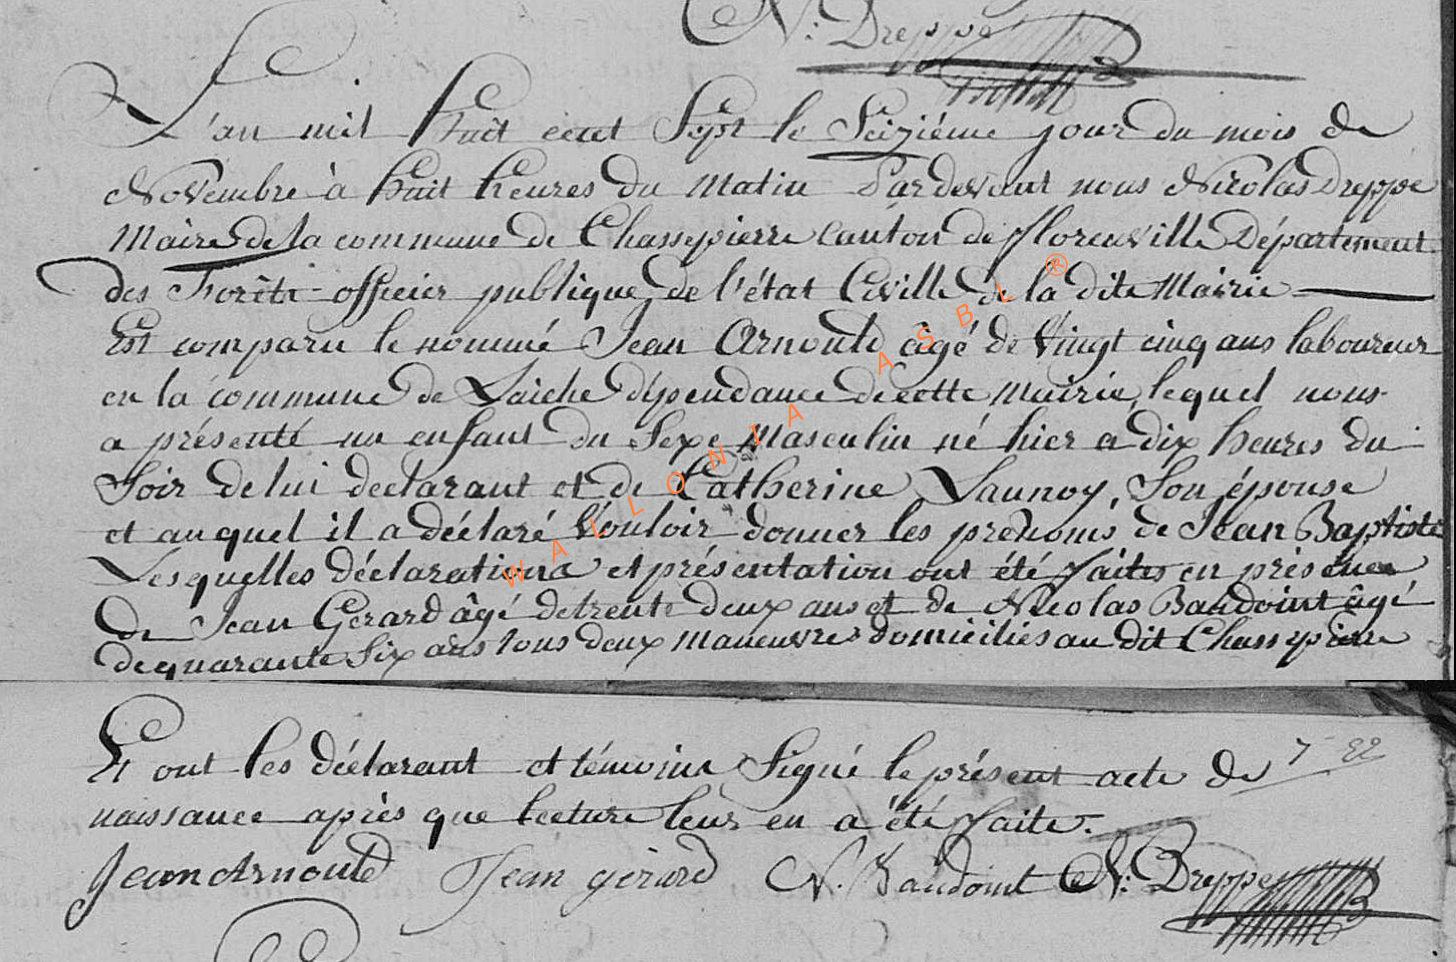 N: Dreppe
L'an mil huit cent Sept le Seiziéme jour du mois de
Novembre à huit heures du Matin Pardevant nous Nicolas Dreppe
Maire de la commune de Chassepierre Canton de florenville Département
des Forêts officier publique de l'état Civille de la dite Mairie
Est comparu le nommé Jean Arnould âgé de Vingt cinq ans laboureur
en la commune de Laiche dépendance de cette Mairie, lequel nous
a présenté un enfant du Sexe Masculin né hier a dix heures du
Soir de lui declarant et de Catherine Launoy, Son épouse
et auquel il a déclaré Vouloir donner les prénoms de Jean Baptiste
Lesquelles déclarations et présentation ont été faites en présence
de Jean Gerard âgé de trente deux ans et de Nicolas Baudoint âgé
de quarante Six ans tous deux Maneuvres domiciliés au dit Chassepierre
Et ont les déclarant et témoins Signé le présent acte de
naissance après que lecture leur en a été faite.
Jean Arnould Jean gérard N. Baudoint N: Dreppe
WALLONIA ASBL ®